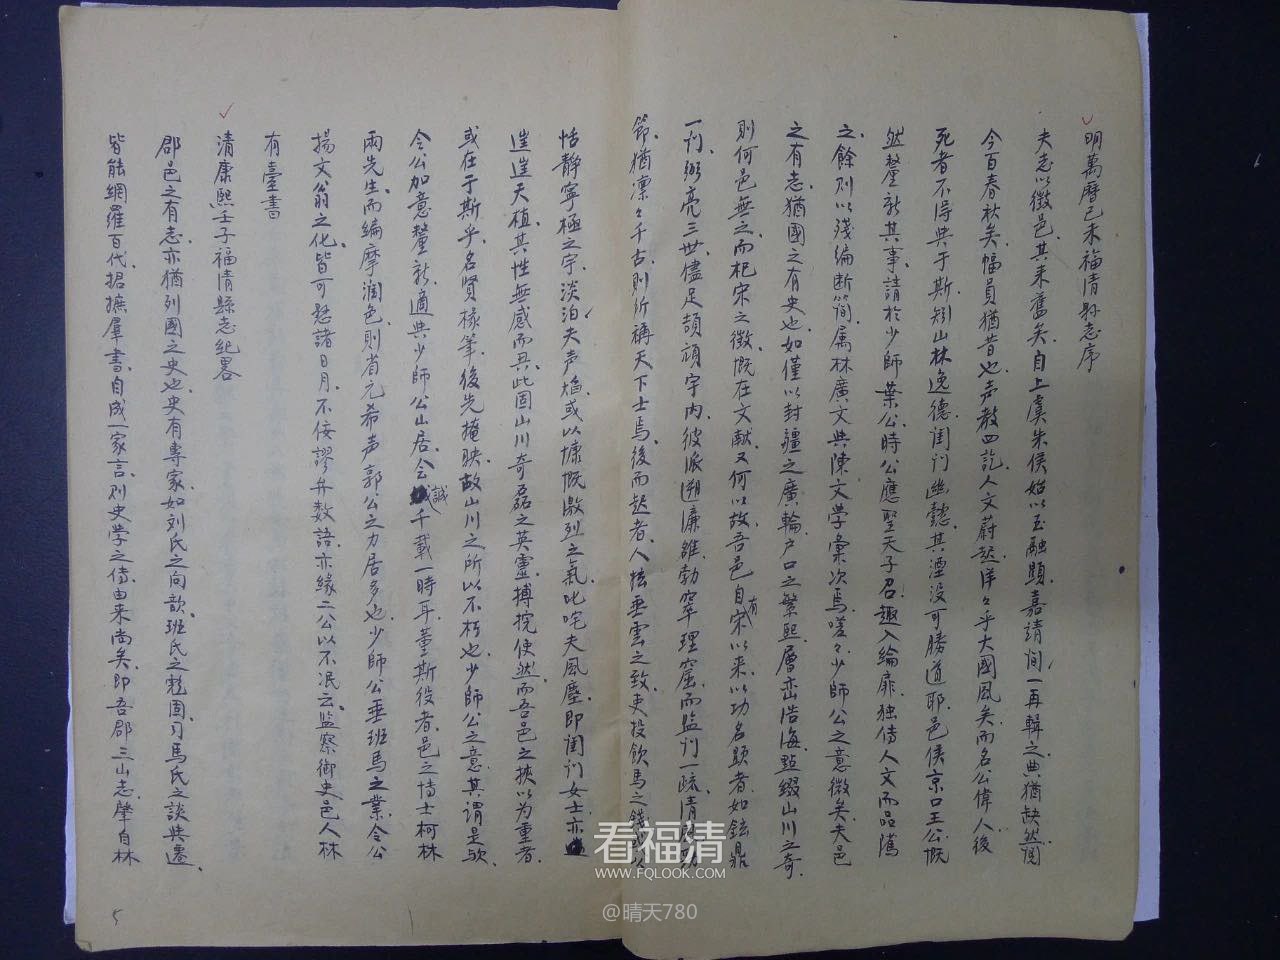 明萬曆己未福清县志序
夫志以徵邑其来舊矣自上虞朱侯始以玉融顯嘉靖间一再輯之典猶缺然閲
今百春秋矣幅員猶昔也声教四訖人文蔚起洋々乎大國風矣而名公偉人後
死者不得典于斯矧山林逸德闺门幽懿其湮没可勝道耶邑侯京口王公慨
然釐新其事請於少師葉公時公應聖天子召趣入綸扉独侍人文而品潘
之餘则以残编断简属林廣文典陳文学彙次焉嗟々少師公之意微矣夫邑
之有志猶國之有史也如僅以封疆之廣輪户口之繁熙層峦浩海點缀山川之奇
则何邑無之而杞宋之徵慨在文献又何以故吾邑自有宋以来以功名顯者如鉉鼎
一刊弼亮三世儘足頡頏宇内彼派溯濂雒勃窣理窟而监刊一疏清
節猶凛々千古则所稱天下士焉後而起者人抎垂雲之致吏投飲馬之錢
恬静寧極之宇淡泊夫声焰或以慷慨激烈之氣叱咤夫風塵即闺门女士亦
逬逬天植其性無感而興此固山川奇磊之英靈搏捖使然而吾邑之挾以为重者
或在于斯乎名贤椽筆後先掩映故山川之所以不朽也少師公之意其谓是欤
今公加意釐新適典少師公山居会誠千載一時耳董斯役者邑之博士柯林
兩先生而编摩潤色则省元希声郭公之力居多也少師公垂班馬之業今公
揚文翁之化皆可懸諸日月不佞謬弁数語亦缘二公以不泯云监察御史邑人林
有臺書
清康熙壬子福清縣志纪畧
郡邑之有志亦猶列國之史也史有專家如刘氏之向歆班氏之彪固司馬氏之談典遷
皆能網羅百代捃摭羣書自成一家言则史学之傳由来尚矣即吾郡三山志肇自林
5
看福清
WWW.FQLOOK.COM
@晴天780